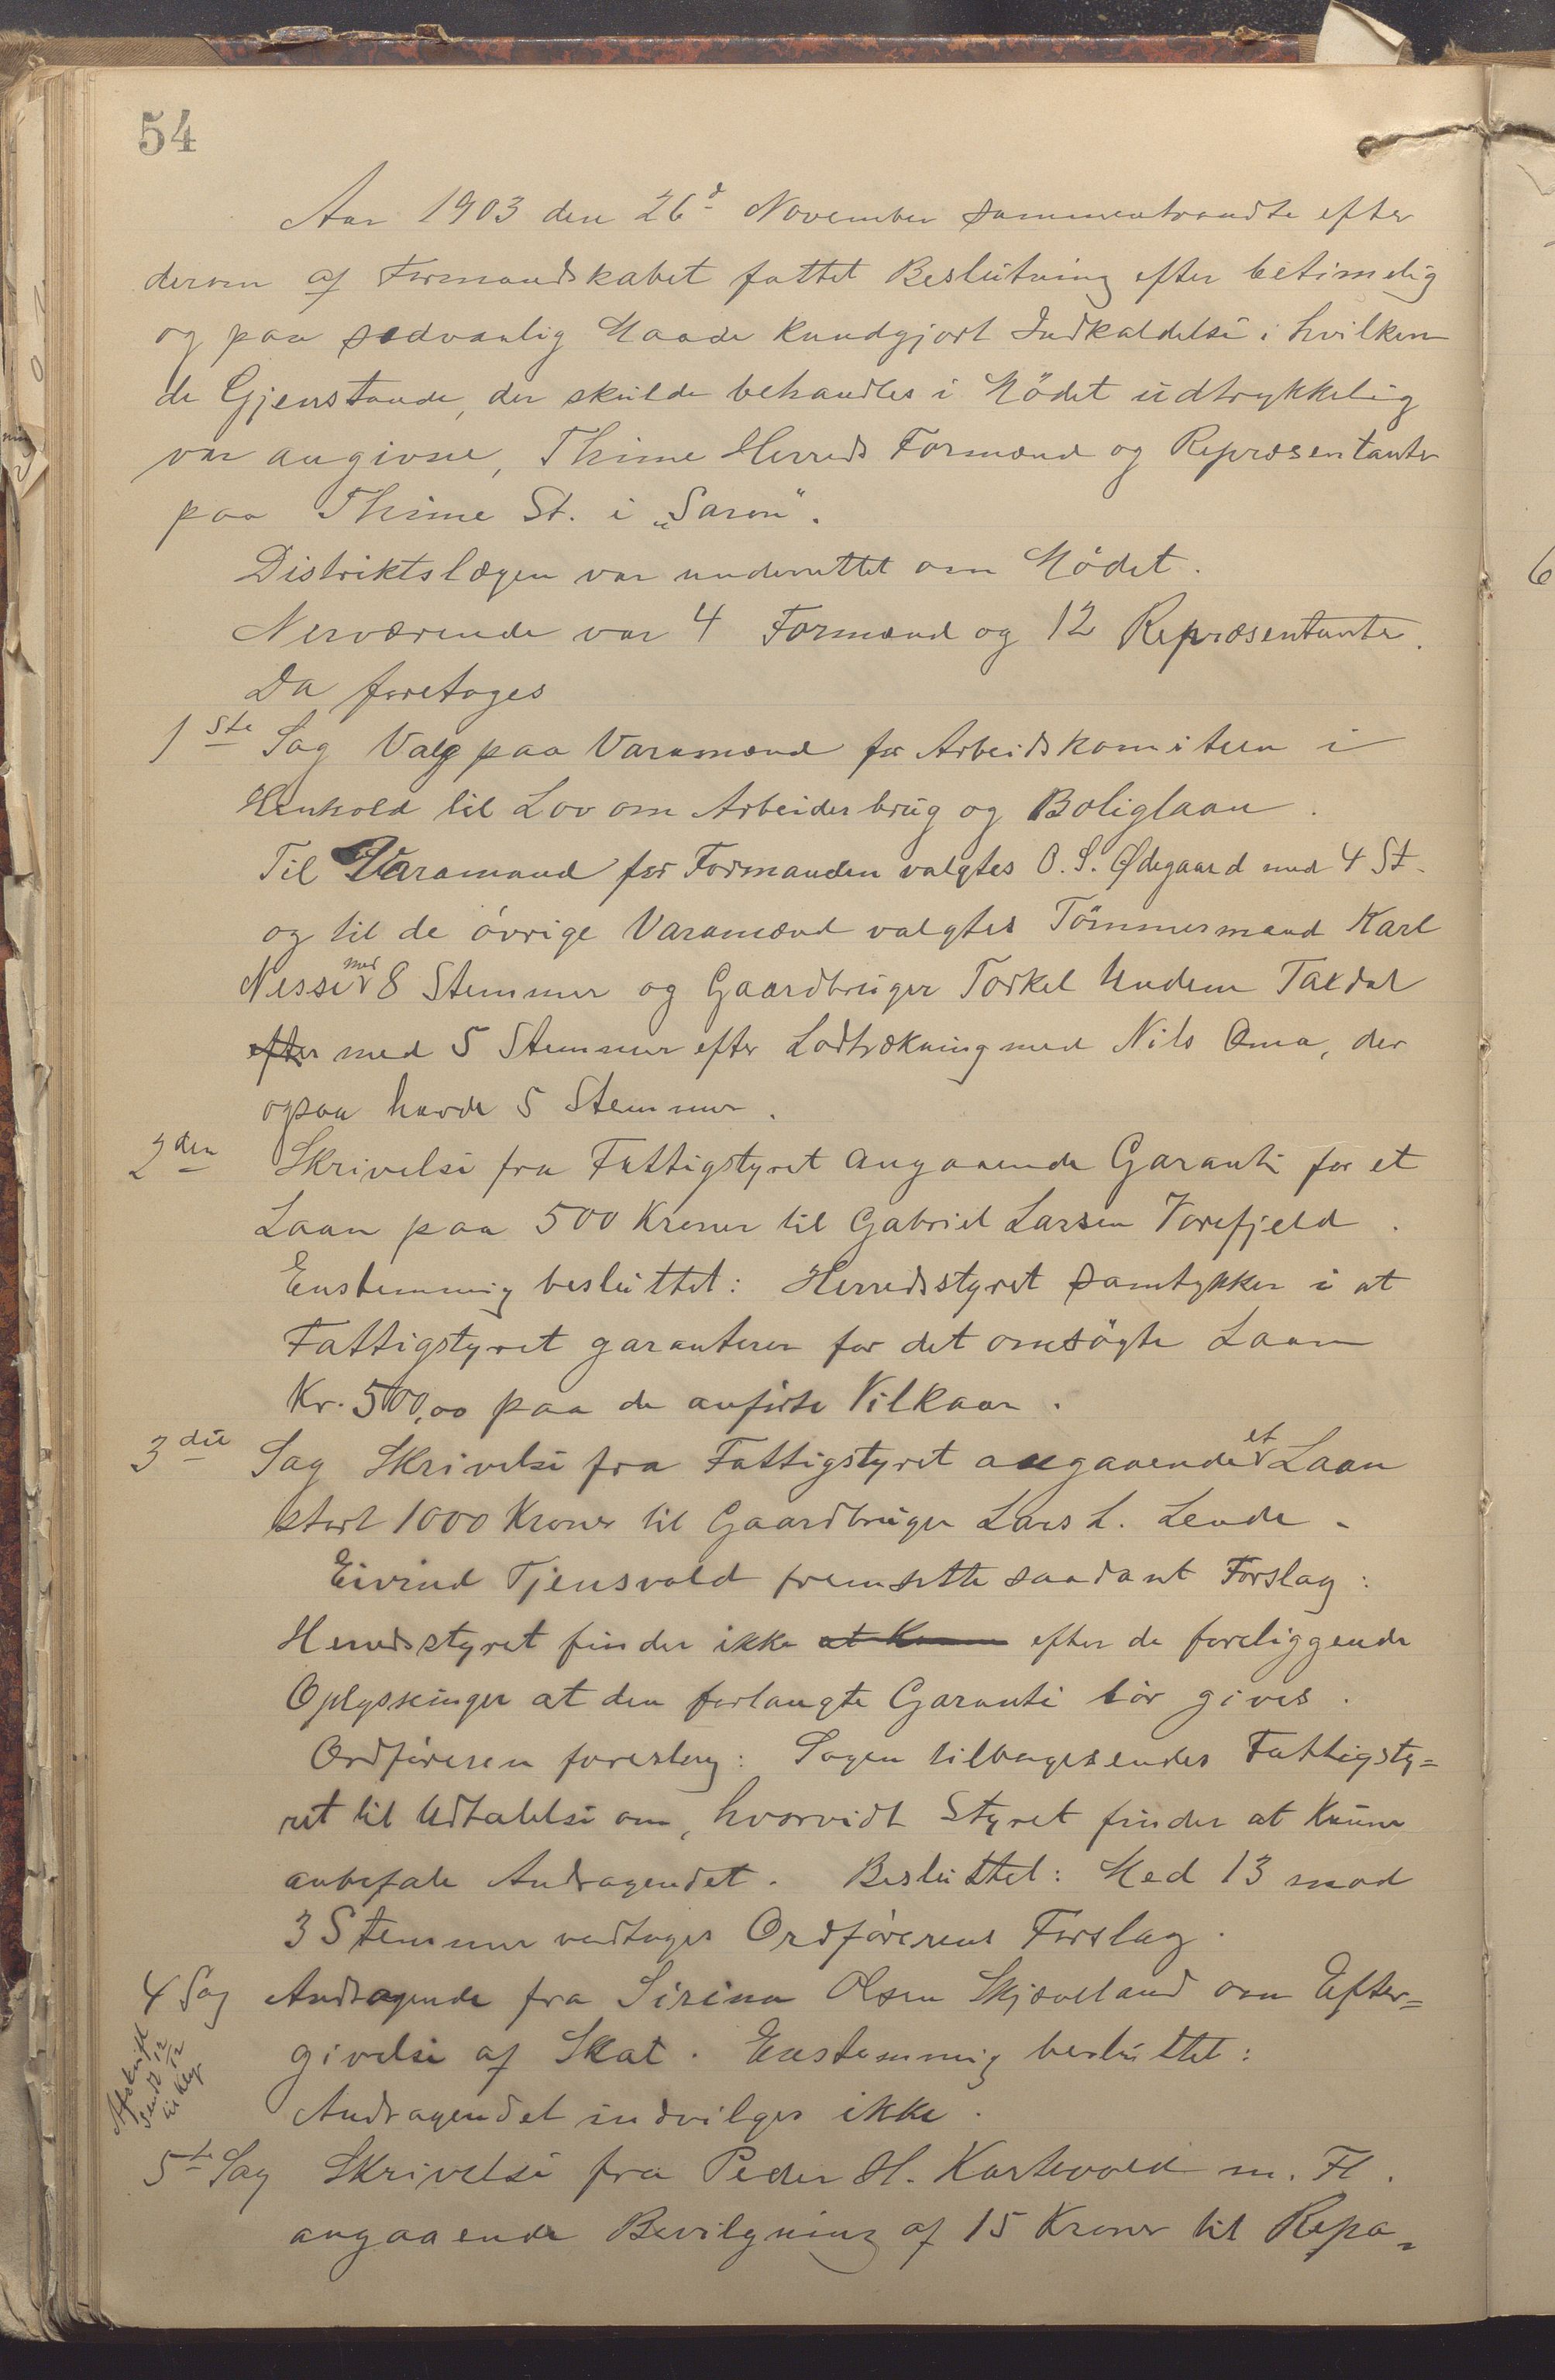 54
Aar 1903 den 26d November sammentraadte efter
derom af Formandskabet fattet Beslutning efter betimelig
og paa sædvanlig Maade kundgjort Indkaldelse i hvilken
de Gjenstande, der skulde behandles i Mödet udtrykkelig
var angivne, Thime Herreds Formænd og Repræsentanter
paa Thime St. i „Saron".
Distriktslægen var underrettet om Mödet.
Nerværende var 4 Formænd og 12 Repræsentanter.
Da foretoges
1ste Sag Valg paa Varamænd for Arbeidskomiteen i
Henhold til Lov om Arbeiderbrug og Boliglaan.
Til Varamand for Formanden valgtes O. S. Ødegaard med 4 St.
og til de övrige Varamænd valgtes Tömmermand Karl
Nesse med 8 Stemmer og Gaardbruger Torkel Undem Taxdal
efter med 5 Stemmer efter Lodtrækning med Nils Oma, der
ogsaa havde 5 Stemmer.
2den Skrivelse fra Fattigstyret angaaende Garanti for et
Laan paa 500 Kroner til Gabriel Larsen Vorefjeld.
Enstemmig besluttet: Herredsstyret samtykker i at
Fattigstyret garanterer for det omsögte Laan
Kr. 500,00 paa de anförte Vilkaar.
3die Sag Skrivelse fra Fattigstyret angaaende et Laan
stort 1000 Kroner til Gaardbruger Lars L. Lende.
Eivind Tjensvold fremsatte saadant Forslag:
Herredsstyret finder ikke at efter de foreliggende
Oplysninger at den forlangte Garanti bör gives.
Ordföreren foreslog: Sagen tilbagesendes Fattigsty=
ret til Udtalelse om, hvorvidt Styret finder at kunne
anbefale Andragendet. Besluttet: Med 13 mod
3 Stemmer vedtoges Ordförerens Forslag.
4 Sag Andragende fra Sirina Olsen Skjæveland om Efter=
givelse af Skat. Enstemmig besluttet:
Andragendet indvilges ikke.
Afskrift
sendt 12/12
til
5te Sag Skrivelse fra Peder H. Kartevold m. Fl.
angaaende Bevilgning af 15 Kroner til Repa=
6